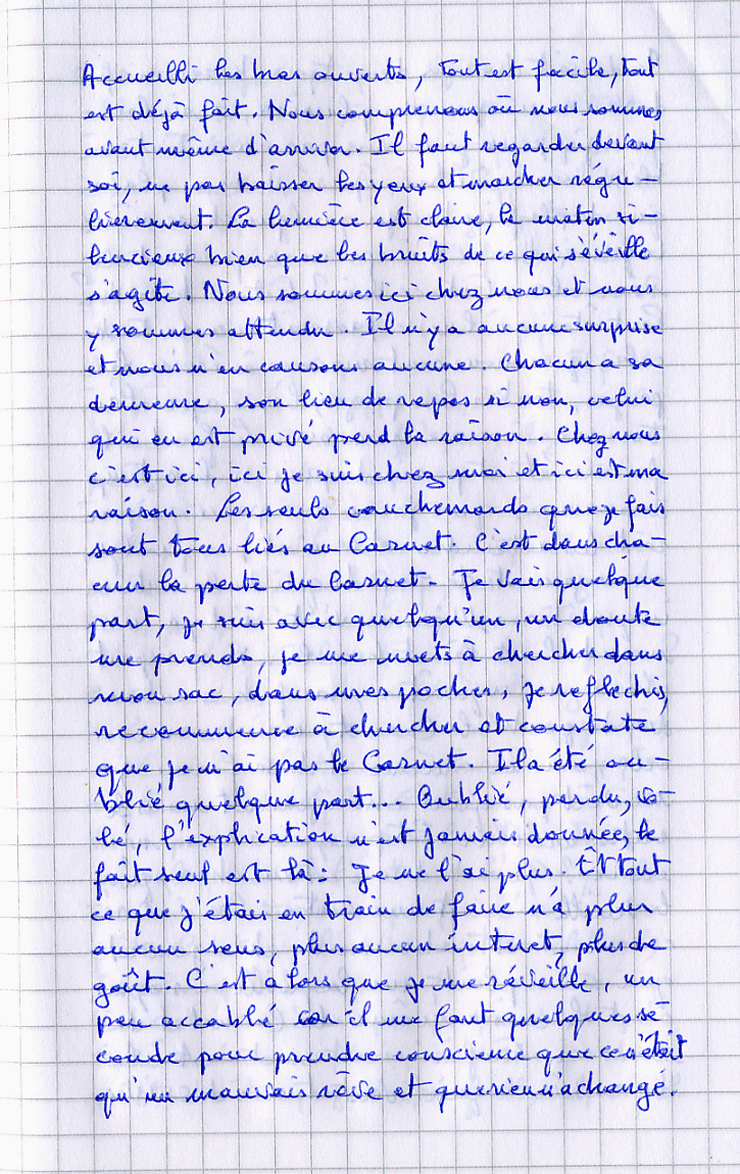 Accueilli les bras ouverts, tout est facile, tout
est déjà fait. Nous comprenons où nous sommes
avant même d'arriver. Il faut regarder devant
soi, ne pas baisser les yeux et marcher régu-
lièrement. La lumière est claire, le matin si-
lencieux bien que les bruits de ce qui s'éveille
s'agite. Nous sommes ici chez nous et nous
y sommes attendu. Il n'y a aucune surprise
et nous n'en causons aucune. Chacun a sa
demeure, son lieu de repos si non, celui
qui en est privé perd la raison. Chez nous
c'est ici, ici je suis chez moi et ici est ma
raison. Les seuls cauchemards que je fais
sont tous liés au Carnet. C'est dans cha-
cun la perte du Carnet. Je vais quelque
part, je suis avec quelqu'un, un doute
me prends, je me mets à chercher dans
mon sac, dans mes poches, je reflechis,
recommence à chercher et constate
que je n'ai pas le Carnet. Il a été ou-
blié quelque part... Oublié, perdu, vo-
lé, l'explication n'est jamais donnée, le
fait seul est là: Je ne l'ai plus. Et tout
ce que j'étais en train de faire n'a plus
aucun sens, plus aucun interet, plus de
goût. C'est alors que je me réveille, un
peu accablé car il me faut quelques se-
conde pour prendre conscience que ce n'était
qu'un mauvais rêve et que rien n'a changé.